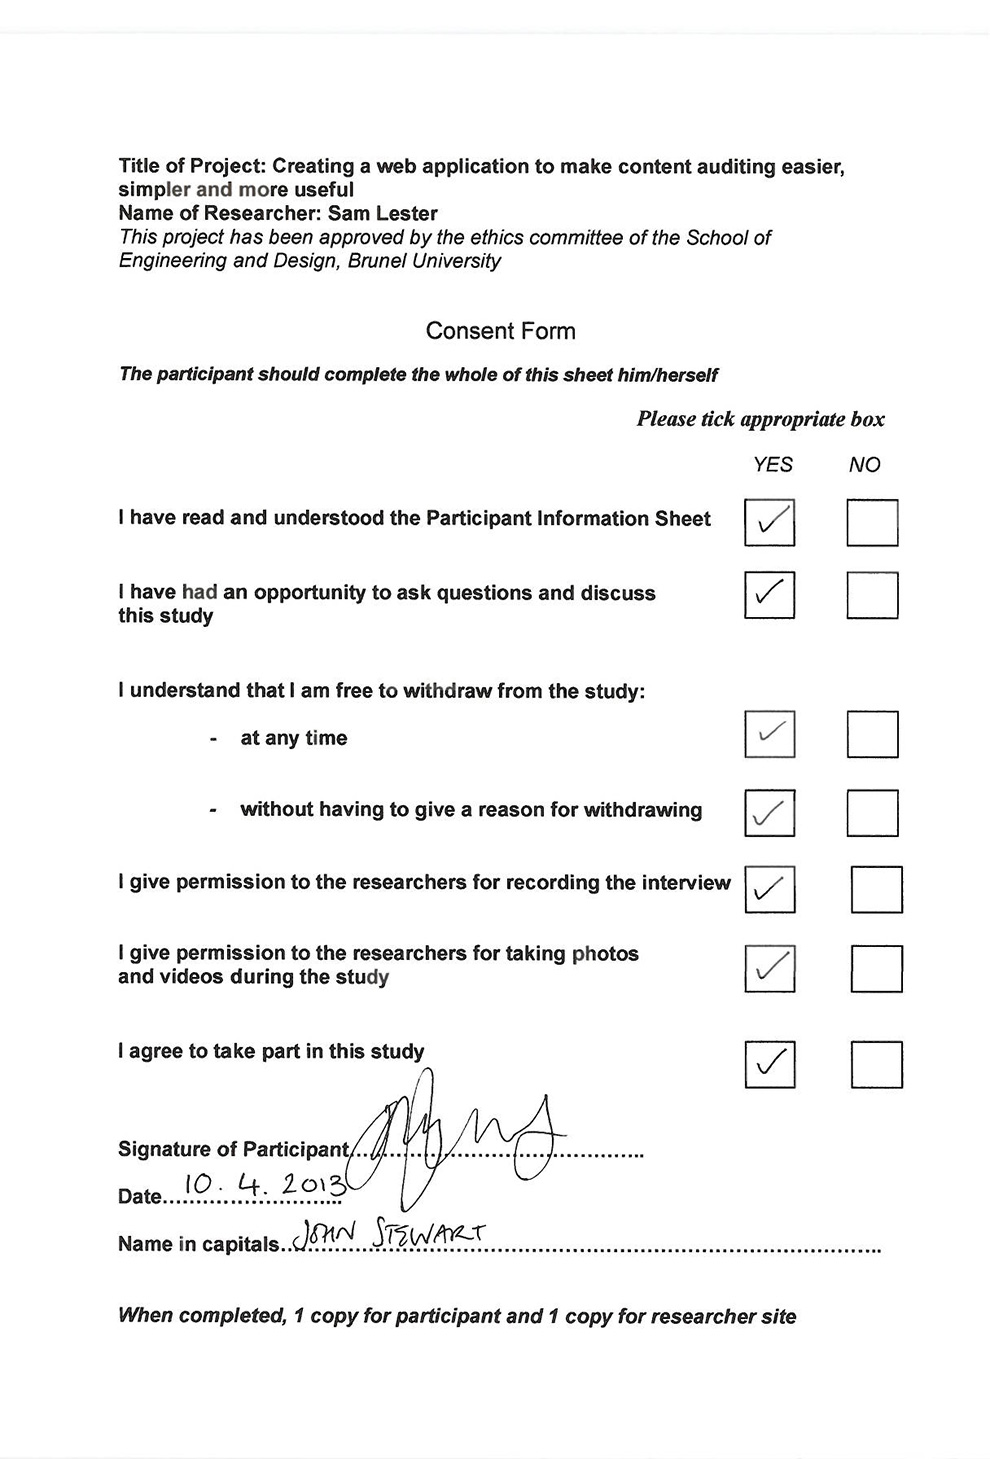 Title of Project: Creating a web application to make content auditing easier,
simpler and more useful
Name of Researcher: Sam Lester
This project has been approved by the ethics committee of the School of
Engineering and Design, Brunel University
Consent Form
The participant should complete the whole of this sheet him/herself
Please tick appropriate box
YES NO
I have read and understood the Participant Information Sheet
I have had an opportunity to ask questions and discuss
this study
I understand that I am free to withdraw from the study:
- at any time
- without having to give a reason for withdrawing
I give permission to the researchers for recording the interview
I give permission to the researchers for taking photos
and videos during the study
I agree to take part in this study
Signature of Participant
Date 10.4.2013
Name in capitals JOHN STEWART
When completed, 1 copy for participant and 1 copy for researcher site